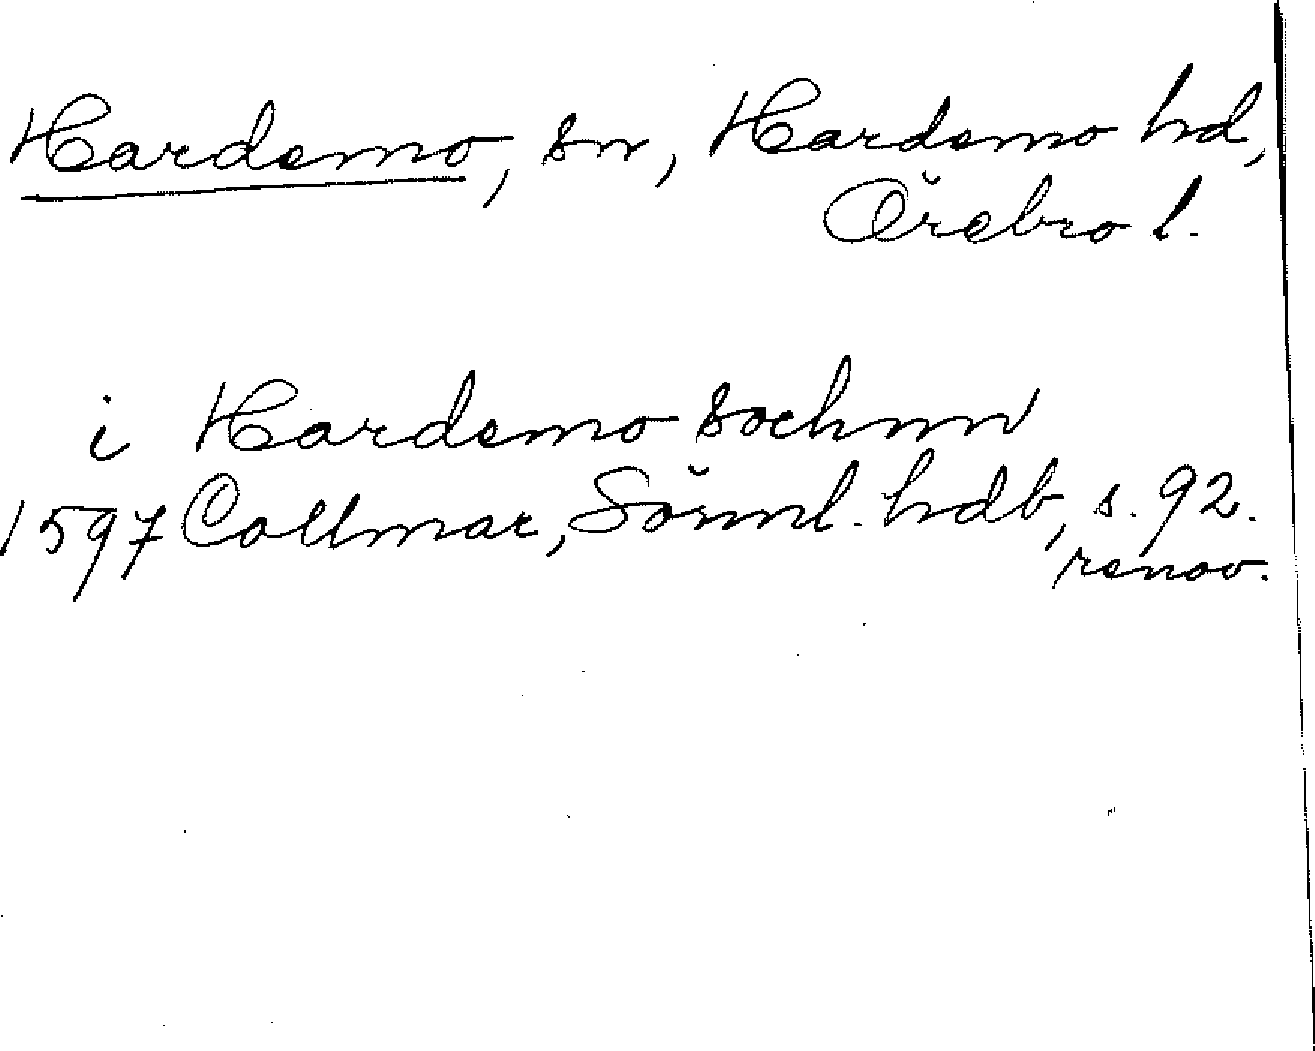 Hardemo, sn, Hardemo hd,
Örebro l.
i Hardemo sochnn
1597 Collmar, Sörml. hdb, s. 92.
renov.